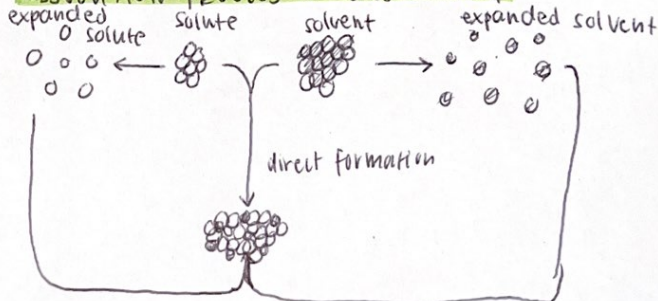 expanded
solute
solute
solvent
expanded solvent
direct formation